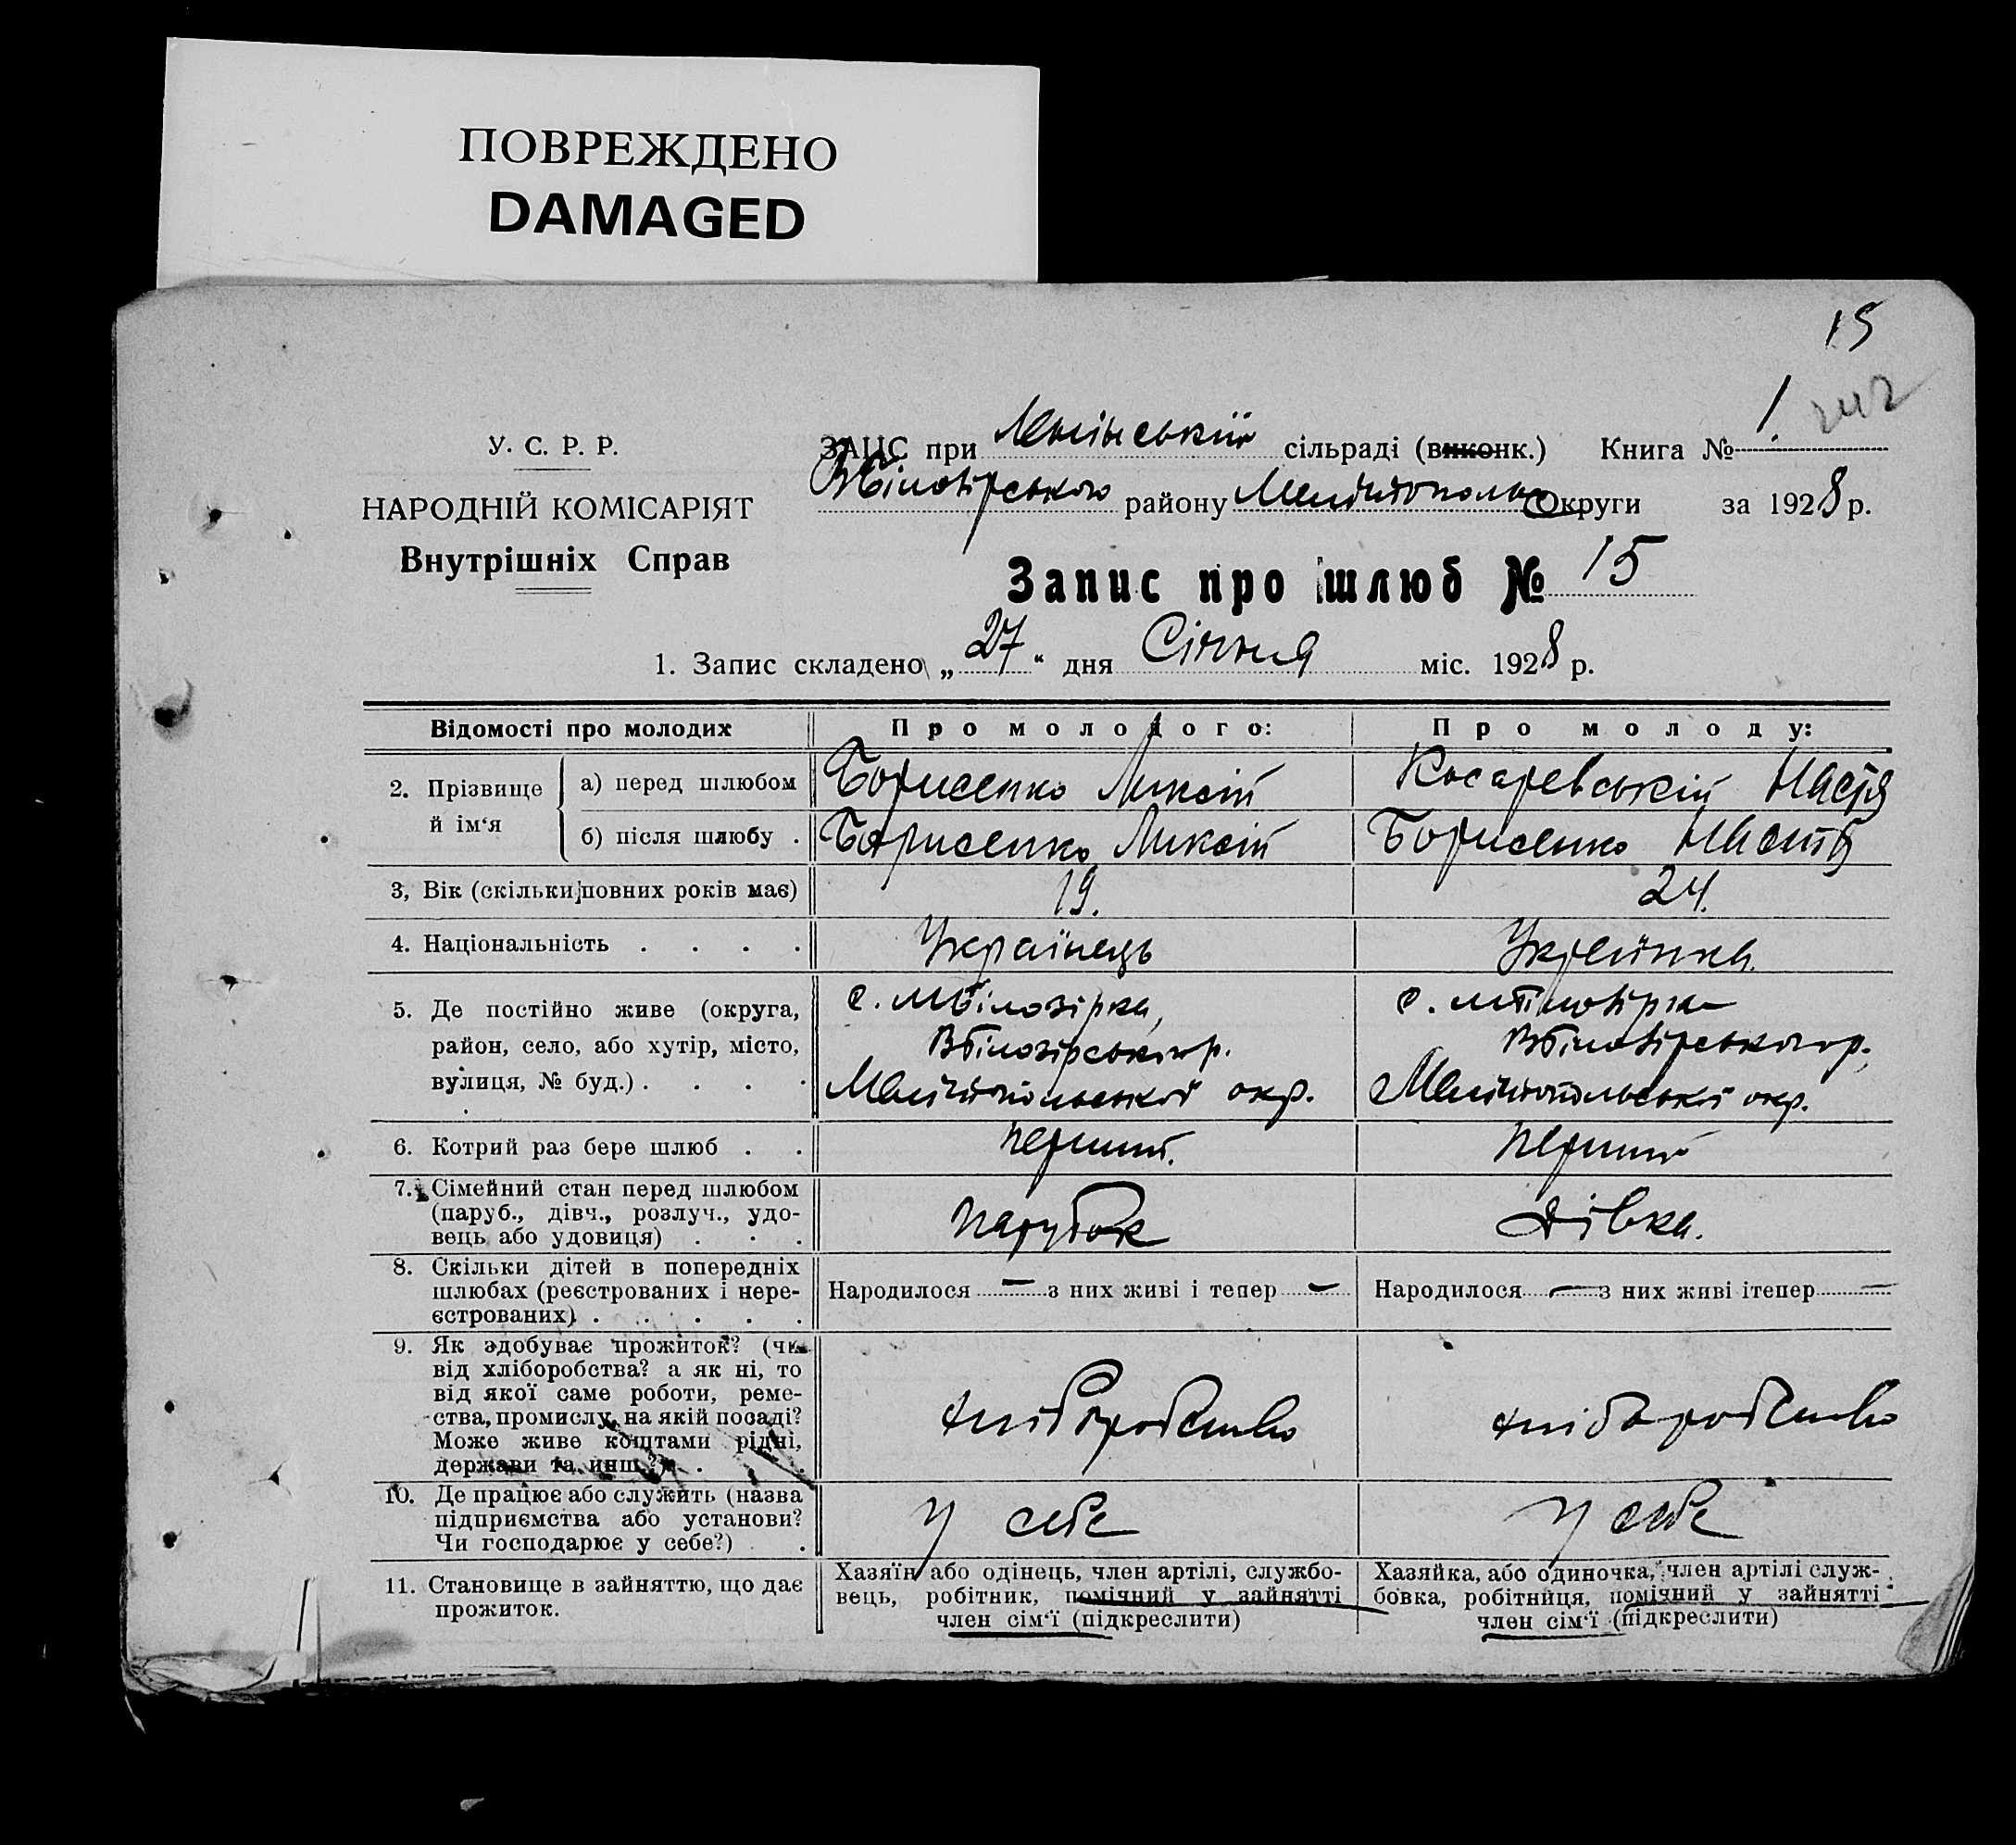 ПОВРЕЖДЕНО
DAMAGED
15
1. 242
У. С. Р. Р.
НАРОДНІЙ КОМІСАРІЯТ
Внутрішніх Справ
ЗАЦС при сільраді (виконк.) Книга №
Вбілозірського району Мелітополь Округи за 1928 р.
Запис про шлюб № 15
1. Запис складено „ 27 “ дня Січня міс. 1928 р.
Відомості про молодих Про молодого: Про молоду:
2. Прізвище й ім‘я
а) перед шлюбом Борисенко Микит Косаревській Настя
б) після шлюбу . Борисенко Микит Борисенко Настя
3, Вік (скільки повних років має) 19. 24.
4. Національність . . . . Українець Українка.
5. Де постійно живе (округа, с. Мбілозірка, с. Мбілозірка
район, село, або хутір, місто, Вбілозірського р. Вбілозірського р.
вулиця, № буд.) . . . . Мелітопольської окр. Мелітопольської окр.
6. Котрий раз бере шлюб . . перший. перший
7. Сімейний стан перед шлюбом
(паруб., дівч., розлуч., удо-
вець або удовиця) . . . парубок Дівка.
8. Скільки дітей в попередніх
шлюбах (реєстрованих і нере- Народилося — з них живі і тепер — Народилося — з них живі ітепер —
єстрованих) . . . . .
9. Як здобуває прожиток? (чи
від хліборобства? а як ні, то
від якої саме роботи, реме-
ства, промислу, на якій посаді? хліборобство хліборобство
Може живе коштами рідні,
держави та инш.?) . . .
10. Де працює або служить (назва
підприємства або установи? у себе у себе
Чи господарює у себе?) .
11. Становище в зайняттю, що дає
прожиток.
Хазяїн або одінець, член артілі, службо-
вець, робітник, помічний у зайнятті
член сім‘ї (підкреслити)
Хазяйка, або одиночка, член артілі служ-
бовка, робітниця, помічний у зайнятті
член сім‘ї (підкреслити)